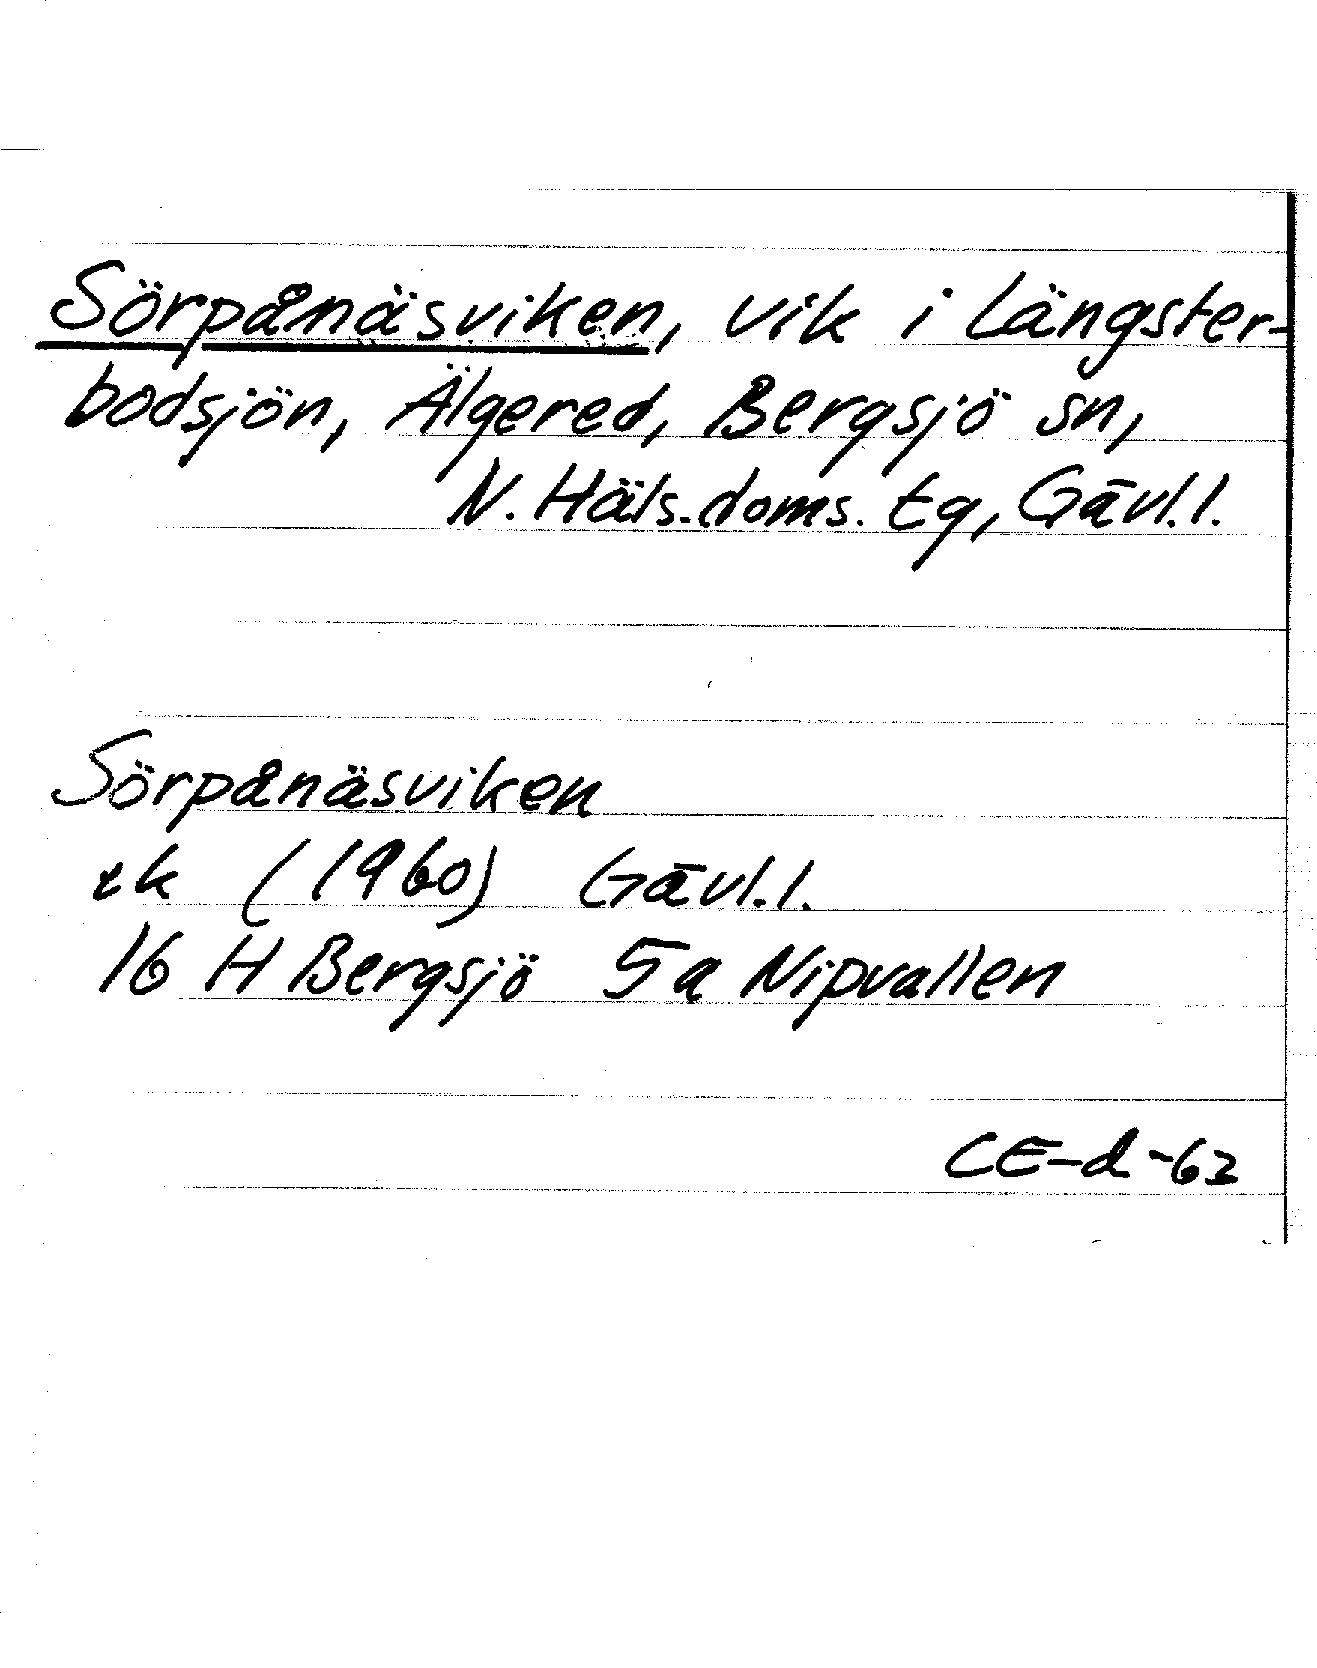 Sörpånäsviken, vik i Längster-
bodsjön, Älgered, Bergsjö sn,
N. Häls. doms. tg, Gävl.l.
Sörpånäsviken
ek (1960) Gävl.l.
16 H Bergsjö 5a Nipvallen
CE-d-62